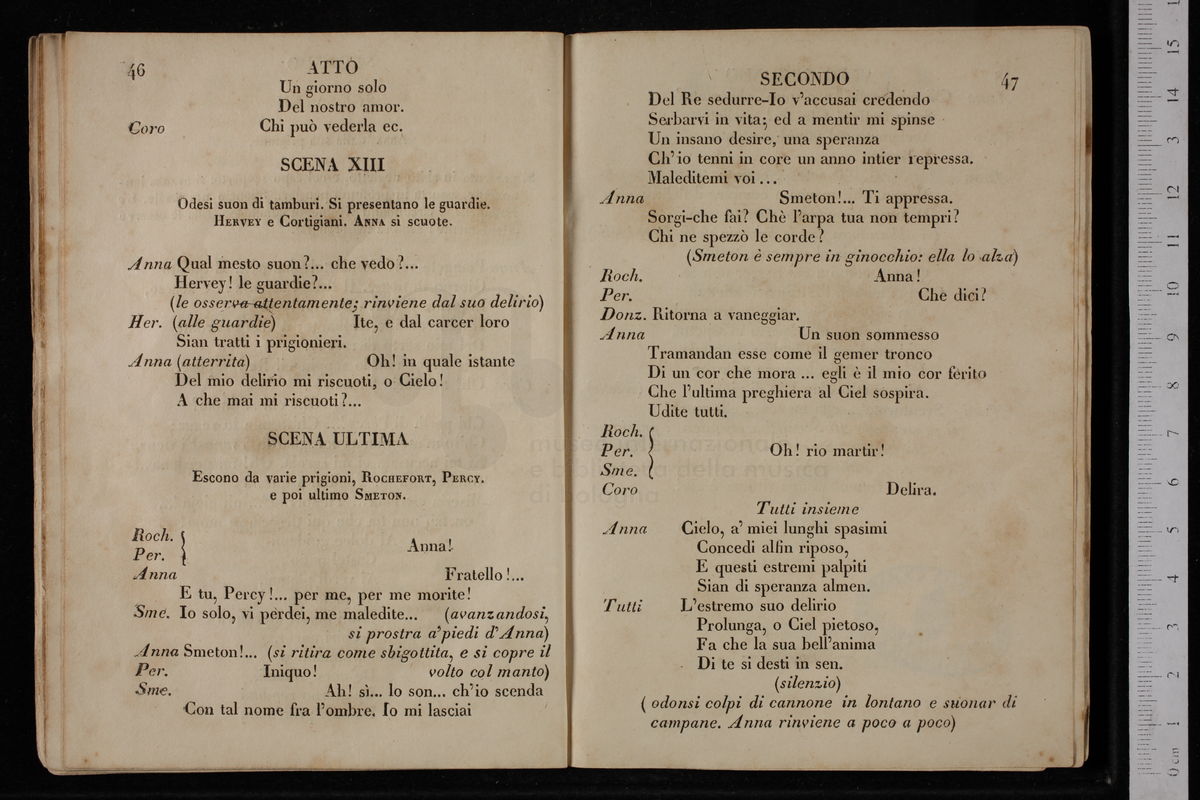 46 ATTO
Un giorno solo
Del nostro amor.
Coro Chi può vederla ec.
SCENA XIII
Odesi suon di tamburi. Si presentano le guardie.
HERVEY e Cortigiani. ANNA si scuote.
Anna Qual mesto suon?... che vedo?...
Hervey! le guardie?...
(le osserva attentamente; rinviene dal suo delirio)
Her. (alle guardie) Ite, e dal carcer loro
Sian tratti i prigionieri.
Anna (atterrita) Oh! in quale istante
Del mio delirio mi riscuoti, o Cielo!
A che mai mi riscuoti?...
SCENA ULTIMA
Escono da varie prigioni, ROCHEFORT, PERCY.
e poi ultimo SMETON.
Roch.
Per. } Anna!
Anna Fratello!...
E tu, Percy!... per me, per me morite!
Sme. Io solo, vi perdei, me maledite... (avanzandosi,
si prostra a' piedi d'Anna)
Anna Smeton!... (si ritira come sbigottita, e si copre il
Per. Iniquo! volto col manto)
Sme. Ah! sì... lo son... ch'io scenda
Con tal nome fra l'ombre. Io mi lasciai
SECONDO 47
Del Re sedurre-Io v'accusai credendo
Serbarvi in vita; ed a mentir mi spinse
Un insano desire, una speranza
Ch'io tenni in core un anno intier repressa.
Maleditemi voi...
Anna Smeton!... Ti appressa.
Sorgi-che fai? Chè l'arpa tua non tempri?
Chi ne spezzò le corde?
(Smeton è sempre in ginocchio: ella lo alza)
Roch. Anna!
Per. Che dici?
Donz. Ritorna a vaneggiar.
Anna Un suon sommesso
Tramandan esse come il gemer tronco
Di un cor che mora ... egli è il mio cor ferito
Che l'ultima preghiera al Ciel sospira.
Udite tutti.
Roch.
Per. { Oh! rio martir!
Sme.
Coro Delira.
Tutti insieme
Anna Cielo, a' miei lunghi spasimi
Concedi alfin riposo,
E questi estremi palpiti
Sian di speranza almen.
Tutti L'estremo suo delirio
Prolunga, o Ciel pietoso,
Fa che la sua bell'anima
Di te si desti in sen.
(silenzio)
( odonsi colpi di cannone in lontano e suonar di
campane. Anna rinviene a poco a poco)
museo internazionale
e biblioteca della musica
di bologna
0 cm 1 2 3 4 5 6 7 8 9 10 11 12 13 14 15